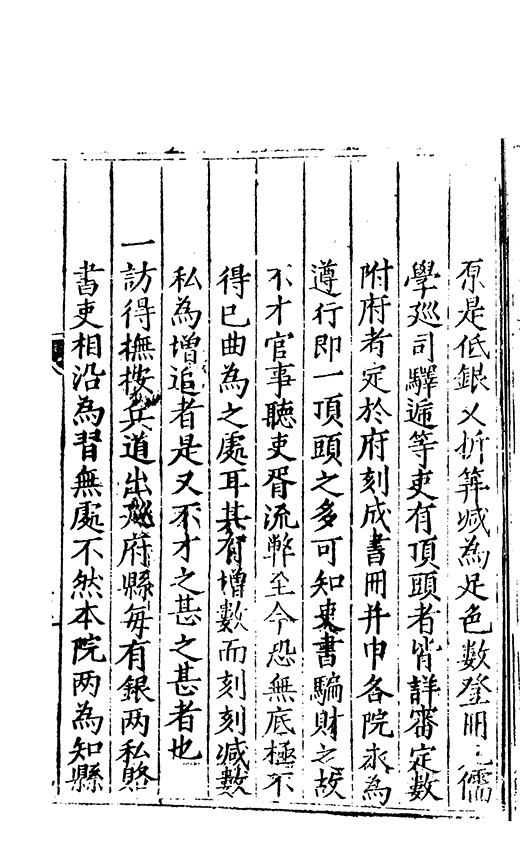 原是低銀又折筭减為足色數登冊凡儒
學廵司驛遞等吏有頂頭者皆詳審定數
附府者定於府刻成書冊并巾各院永為
遵行即一頂頭之多可知吏書騙財之故
不才官事聽吏胥流弊至今恐無底極不
得已曲為之處耳其有增數而刻刻减數
私為增追者是又不才之甚之甚者也
一訪得撫按兵道出廵府縣每有銀两私賂
書吏相沿為習無處不然本院两為知縣